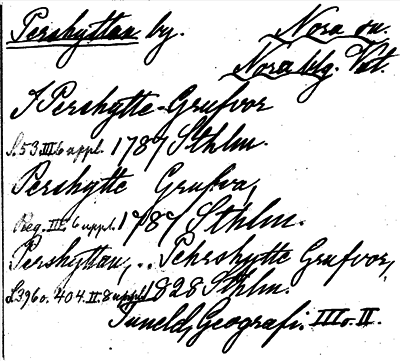 Pershyttan by. Nora sn.
Nora bg. Vst.
I Pershytte-Grufvor
S. 53. III. 6 uppl. 1787 Sthlm.
Pershytte Grufva,
Reg. III. 6 uppl. 1787 Sthlm.
Pershyttan, .. Pehrshytte Grufvor,
S. 396 o. 404. II. 8 uppl. 1828 Sthlm.
Tuneld, Geografi. III o. II.